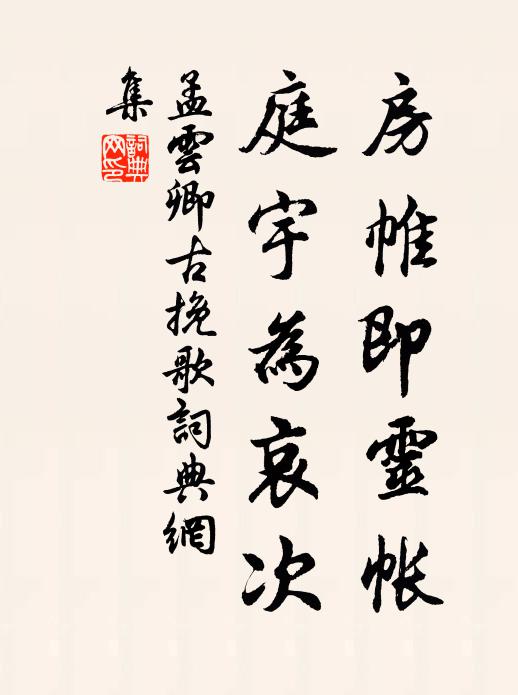 房帷即靈帳
庭宇為哀次
孟雲卿古挽歌詞典網
集
詞典网印